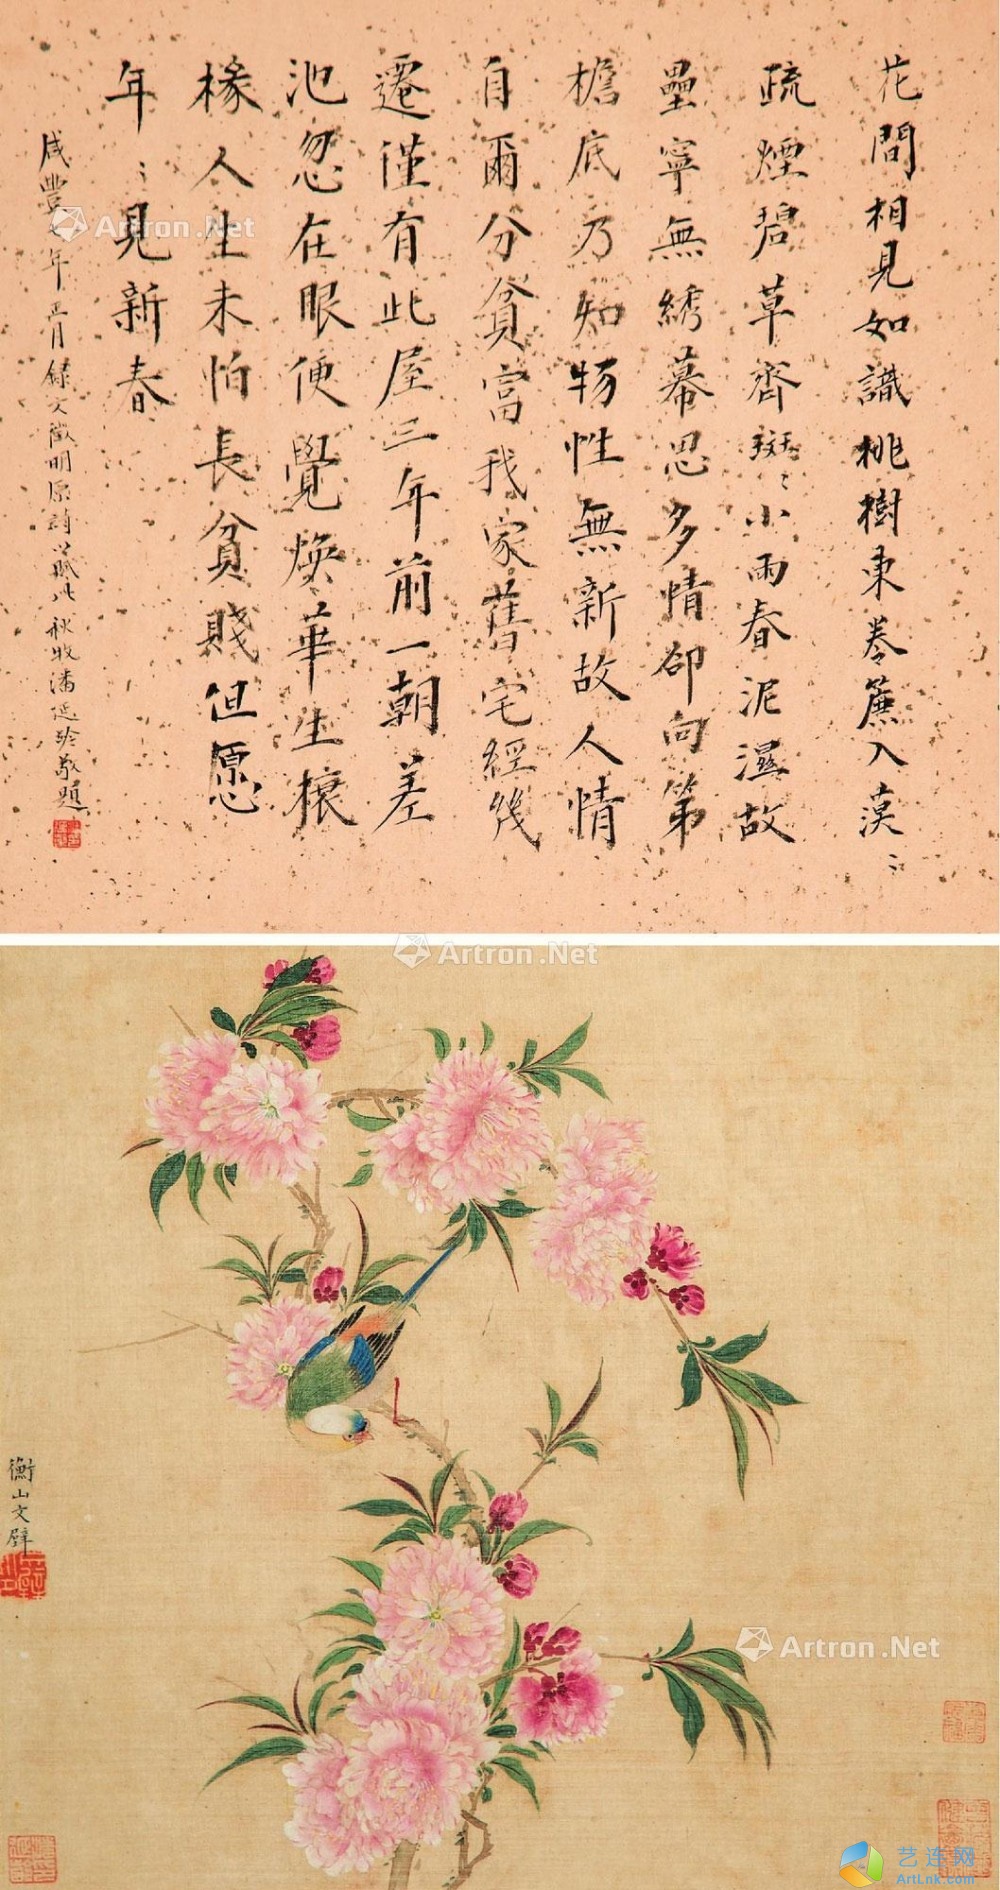 花間相見如識桃樹東卷簾入漠〻
疏煙碧草齊斑〻小雨春泥濕故
壘寧無綉幕思多情卻向第
檐底乃知物性無新故人情
自爾分貧富我家舊宅經幾
遷僅有此屋三年前一朝差
池忽在眼便覺煥華生榱
椽人生未怕長貧賤但愿
年〻見新春
咸豐七年正月錄文徵明原詩 秋 潘 敬題
衡山文壁
Artron.Net
Artron.Net
Artron.Net
艺连网
ArtLnk.com